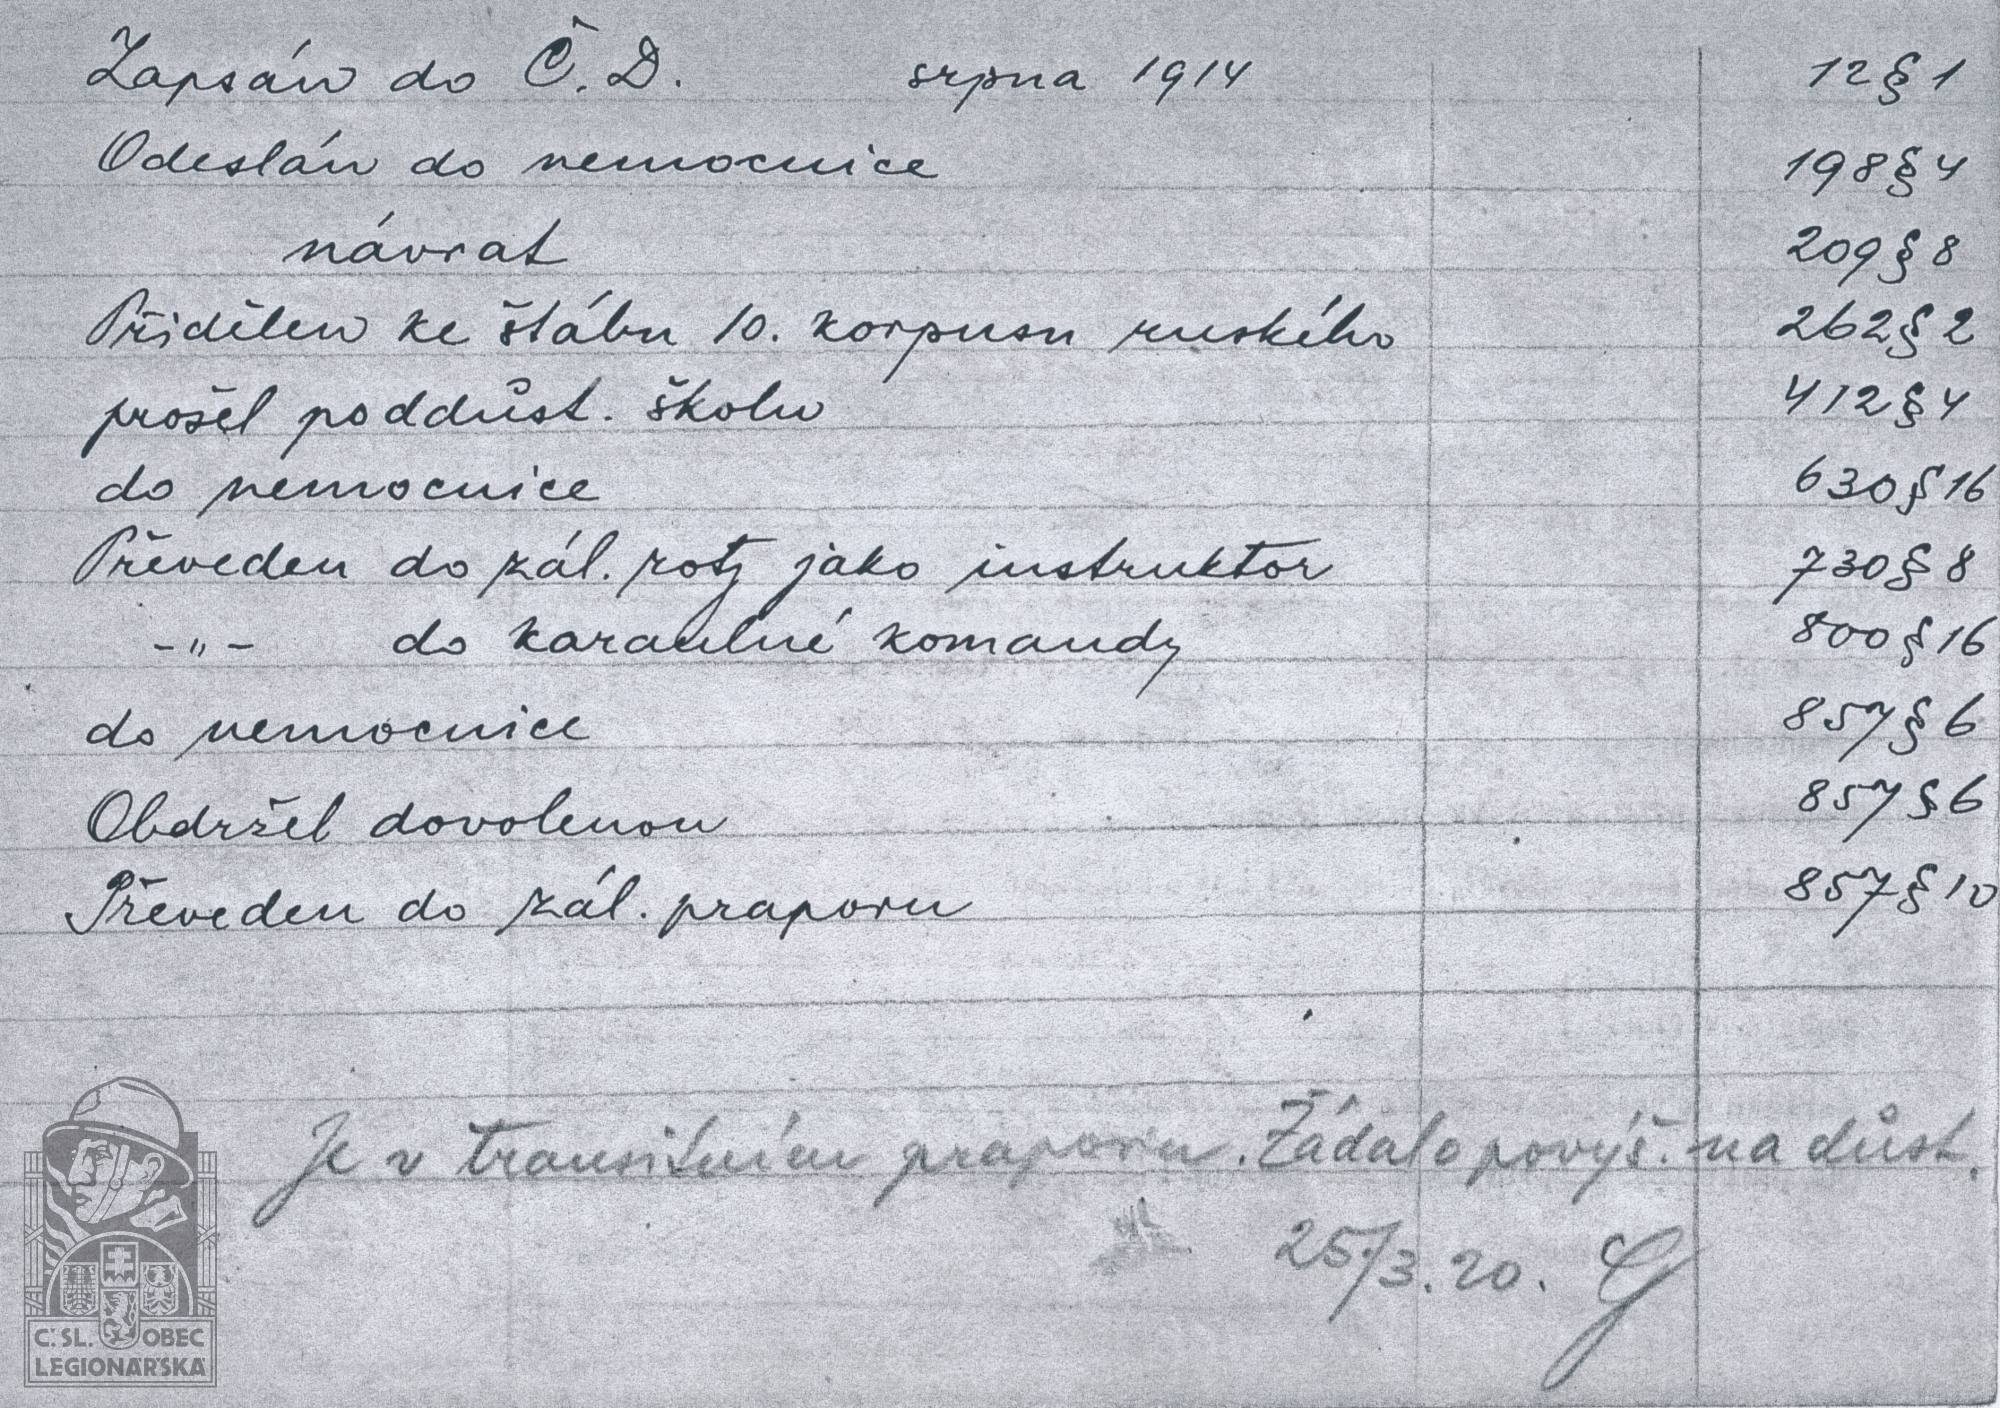 Zapsán do Č. D. srpna 1914 12 § 1
Odeslán do nemocnice 198 § 4
návrat 209 § 8
Přidělen ke štábu 10. korpusu ruského 262 § 2
prošel poddůst. školu 412 § 4
do nemocnice 630 § 16
Převeden do zál. roty jako instruktor 730 § 8
-"- do karaulné komandy 800 § 16
do nemocnice 857 § 6
Obdržel dovolenou 857 § 6
Převeden do zál. praporu 857 § 10
Je v transitním praporu. Žádal o povýš. na důst.
25/3.20.
Č.SL. OBEC
LEGIONÁŘSKÁ